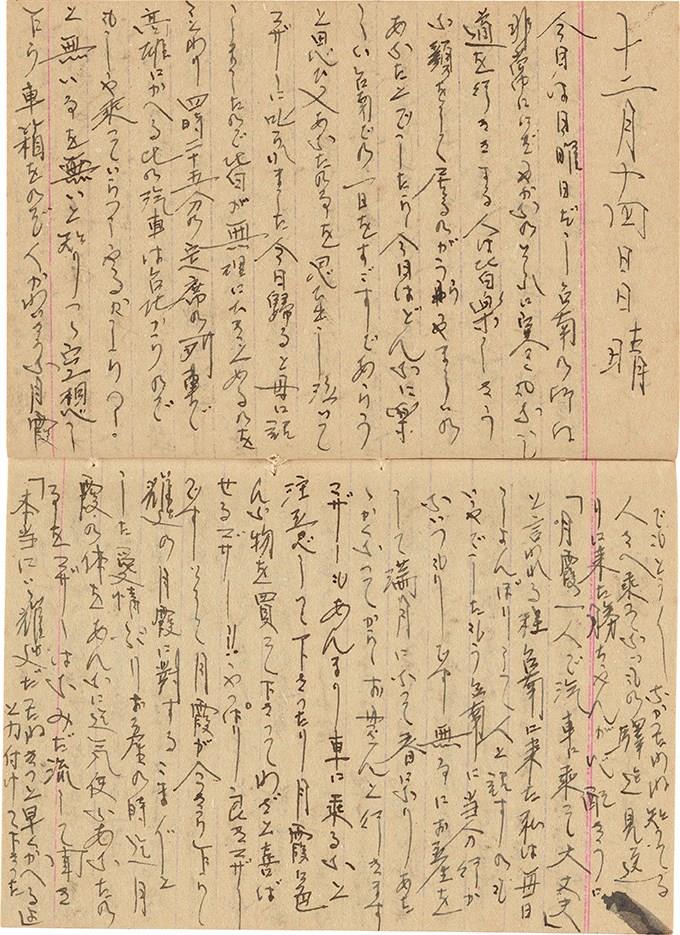 十二月十四日日晴
今日は日曜日だし台南の町は
非常ににぎやかなの
道を行ききする人は皆楽しさう
な顔をして居るのがうらやましいの
あなたとでしたら今日はどんなに楽
しい台南での一日をすごすであらう
と思ひ又あなたの事を思ひ出し泣いて
マザーに叱られました今日帰ると母に話
しましたので皆が無理にたのを
ことわり四時二十五分の定席の列車で
高雄にかへる此の汽車は台北からので
もしや乗っていらっしゃるかしらの
と無い事を無いと知りつゝ空想し
ながら車箱をのぞく人かわいさうな月霞
でもとう〳〵なかったのね知ってる
人さへ乗ってないもの驛迄見送
りに来た勝ちゃんが心配さうに
「月霞一人で汽車に乗って大丈夫」
と言われる程台南に来た私は毎日
しょんぼりして人と話すのも
いやでしたもう台南に当分行か
ないつもりです無事にお産を
して満月になって春になりあた
ゝかくなってからお母さんと行きます
マザーもあんまり車に乗るなと
注意して下さったり月霞に色
んな物を買って下さってわざと喜ば
せるマザー!!やっぱり良きマザー
ですそして月霞が
耀廷の月霞に対するこま〲と
した愛情ぶりお産の時迄月
霞の体をあんなに迄気使ふあなたの
事をマザーはなみだ流して聞き
「本当にいゝ耀廷だなねきっと早くかへるよ
と力付けて下さった